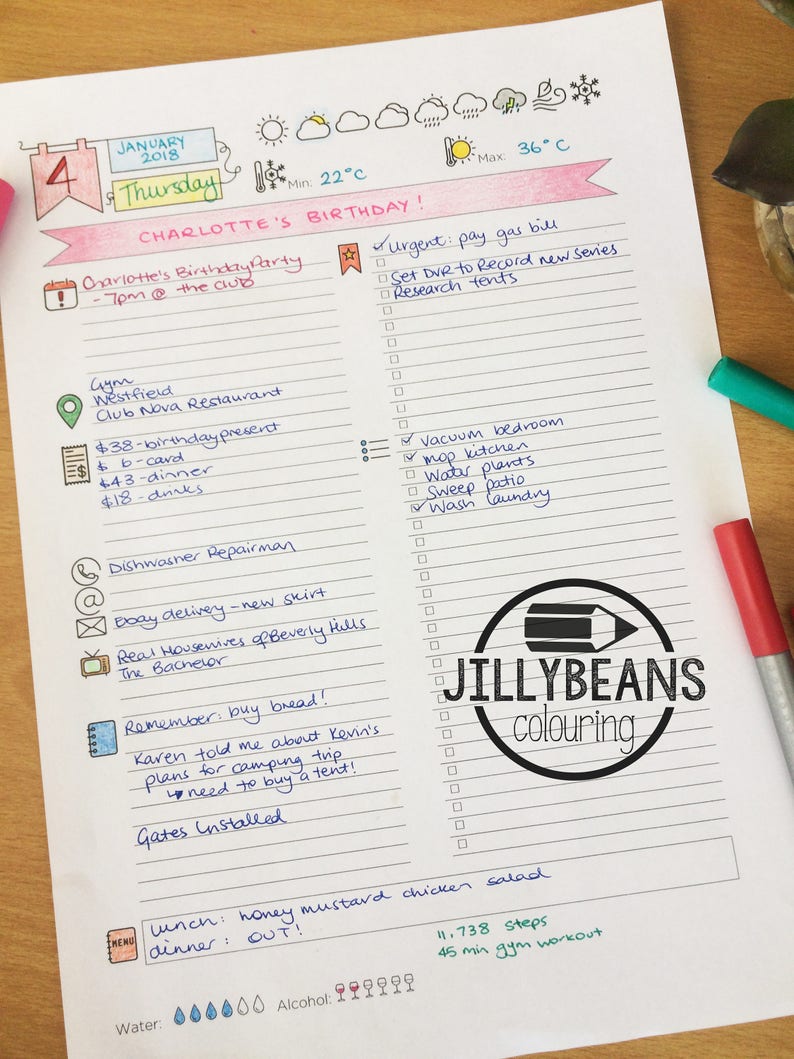 4
JANUARY
2018
Thursday
Min: 22°C
Max: 36°C
CHARLOTTE'S BIRTHDAY!
Charlotte's Birthday Party
- 7pm @ the club
Gym
Westfield
Club Nova Restaurant
$38 - birthday present
$ 6 - card
$43 - dinner
$18 - drinks
Dishwasher Repairman
@
Ebay delivery - new skirt
Real Housewives of Beverly Hills
The Bachelor
Remember: buy bread!
Karen told me about Kevin's
plans for camping trip
↳ need to buy a tent!
Gates Installed
Urgent: pay gas bill
Set DVR to Record new series
Research tents
Vacuum bedroom
mop kitchen
Water plants
Sweep patio
Wash laundry
JILLYBEANS
colouring
MENU
lunch: honey mustard chicken salad
dinner: OUT!
11,738 steps
45 min gym workout
Water:
Alcohol: